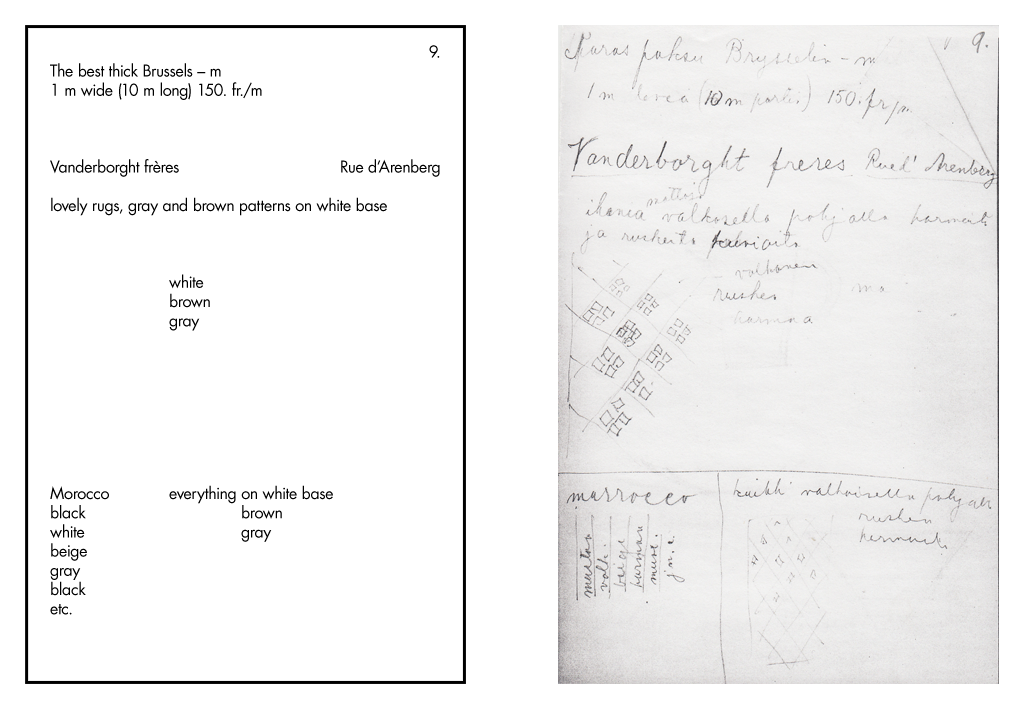 9.
The best thick Brussels – m
1 m wide (10 m long) 150. fr./m
Vanderborght frères Rue d'Arenberg
lovely rugs, gray and brown patterns on white base
white
brown
gray
Morocco everything on white base
black brown
white gray
beige
gray
black
etc.
9.
Paras paksu Brysselin – m
1 m leveä (10 m portti) 150. fr/m
Vanderborght freres. Rue d' Arenberg
mattoja
ihania valkosella pohjalla harmaita
ja ruskeita kuvioita
valkonen
ruskea
harmaa
marrocco
mustaa
valk.
beige
harmaa
must.
j.n.e.
kaikki valkoisella pohjalla
ruskea
harmaa